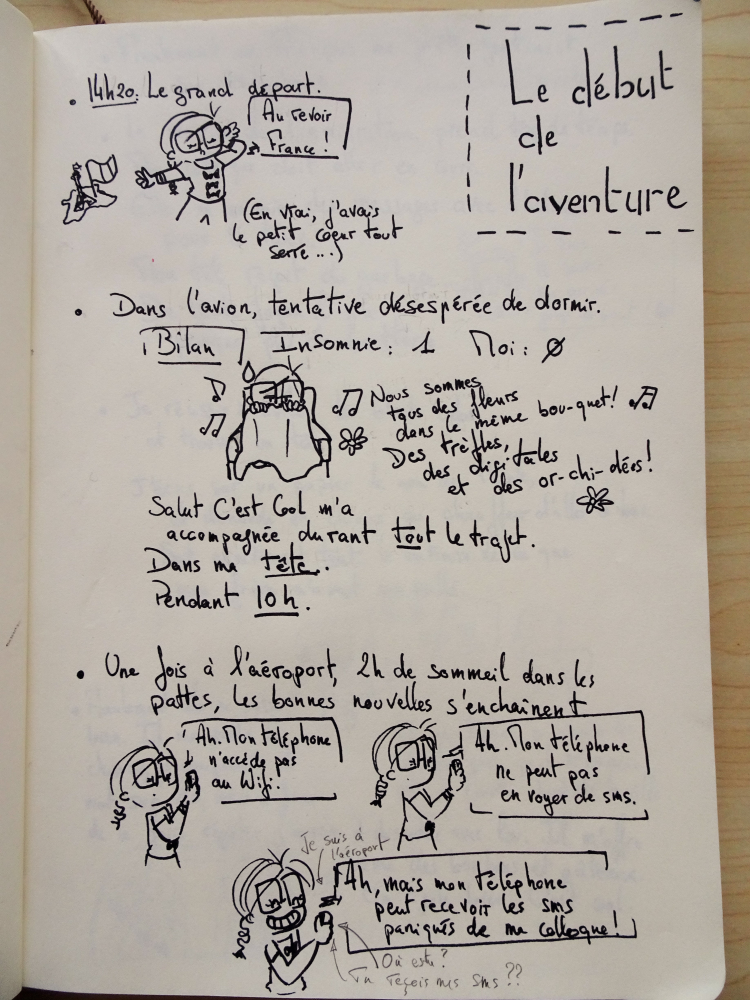 Le début
de
l'aventure
• 14h20: Le grand départ.
Au revoir
France !
(En vrai, j'avais
le petit coeur tout
serré ...)
• Dans l'avion, tentative désespérée de dormir.
Bilan Insomnie : 1 Moi : 0
Nous sommes
tous des fleurs
dans le même bou-quet !
Des trèfles,
des digitales
et des or-chi-dées !
Salut C'est Cool m'a
accompagnée durant tout le trajet.
Dans ma tête.
Pendant 10h.
• Une fois à l'aéroport, 2h de sommeil dans les
pattes, les bonnes nouvelles s'enchaînent
Ah. Mon téléphone
n'accède pas
au Wifi.
Ah. Mon téléphone
ne peut pas
envoyer de sms.
Je suis à
l'aéroport
Ah, mais mon téléphone
peut recevoir les sms
paniqués de ma colloque !
Où es-tu ?
Tu reçois mes sms ??